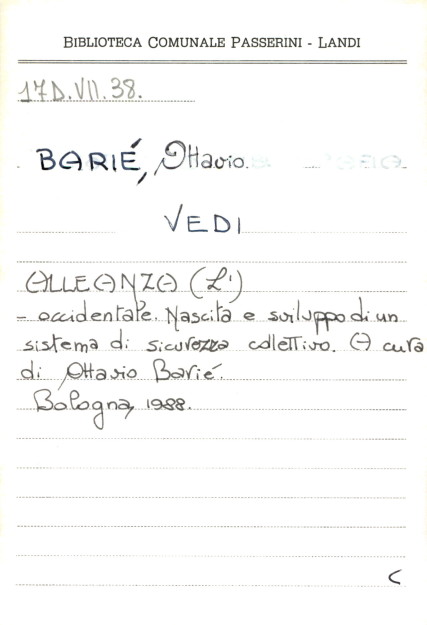 BIBLIOTECA COMUNALE PASSERINI - LANDI
17D.VII.38.
BARIÉ, Ottavio.
VEDI
ALLEANZA (L')
- occidentale. Nascita e sviluppo di un
sistema di sicurezza collettivo. A cura
di Ottavio Barié.
Bologna, 1988.
C